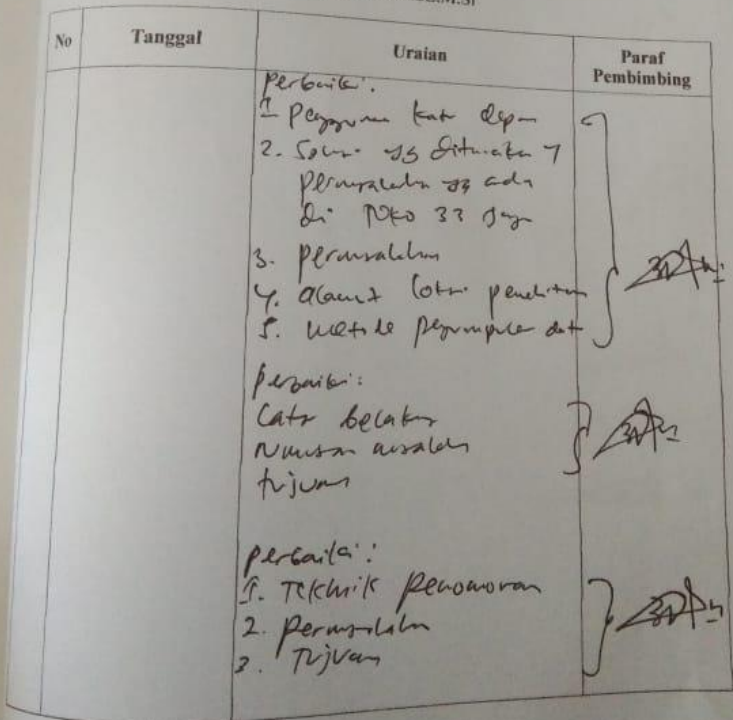 No Tanggal Uraian Paraf Pembimbing
Perbaiki:
1. Penggunaan kata depan
2. Solusi yg ditawarkan
permasalahan yg ada
di Toko 33 Jaya
3. permasalahan
4. alamat lokasi penelitian
5. metode pengumpulan dat
Perbaiki:
Latar belakang
Rumusan masalah
tujuan
perbaiki:
1. Teknik penomoran
2. permasalahan
3. Tujuan